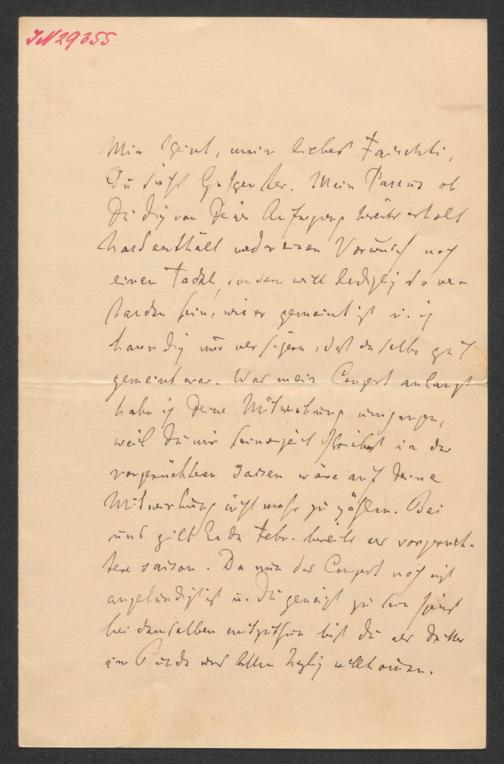 IN 29355
Mir scheint, mein lieber Faistchti,
Du siehst Gespenster. Mein Passus ob
Du Dich von Deiner Aufregung bereits erholt
hast enthält weder einen Vorwurf noch
einen Tadel, sondern will lediglich so ver-
standen sein, wie er gemeint ist u. ich
kann Dich nur versichern, daß derselbe gut
gemeint war. Was mein Concert anlangt
habe ich Deine Mitwirkung umgangen,
weil Du mir seinerzeit schriebst in der
vorgerückteren Saison wäre auf Deine
Mitwirkung nicht mehr zu zählen. Bei
uns gilt Ende Febr. bereits als vorgerück-
tere Saison. Da nun das Concert noch nicht
angekündigt ist u. Du geneigt zu sein scheinst
bei demselben mitzuthun bist Du als Dritter
im Bunde uns Allen herzlich willkommen.